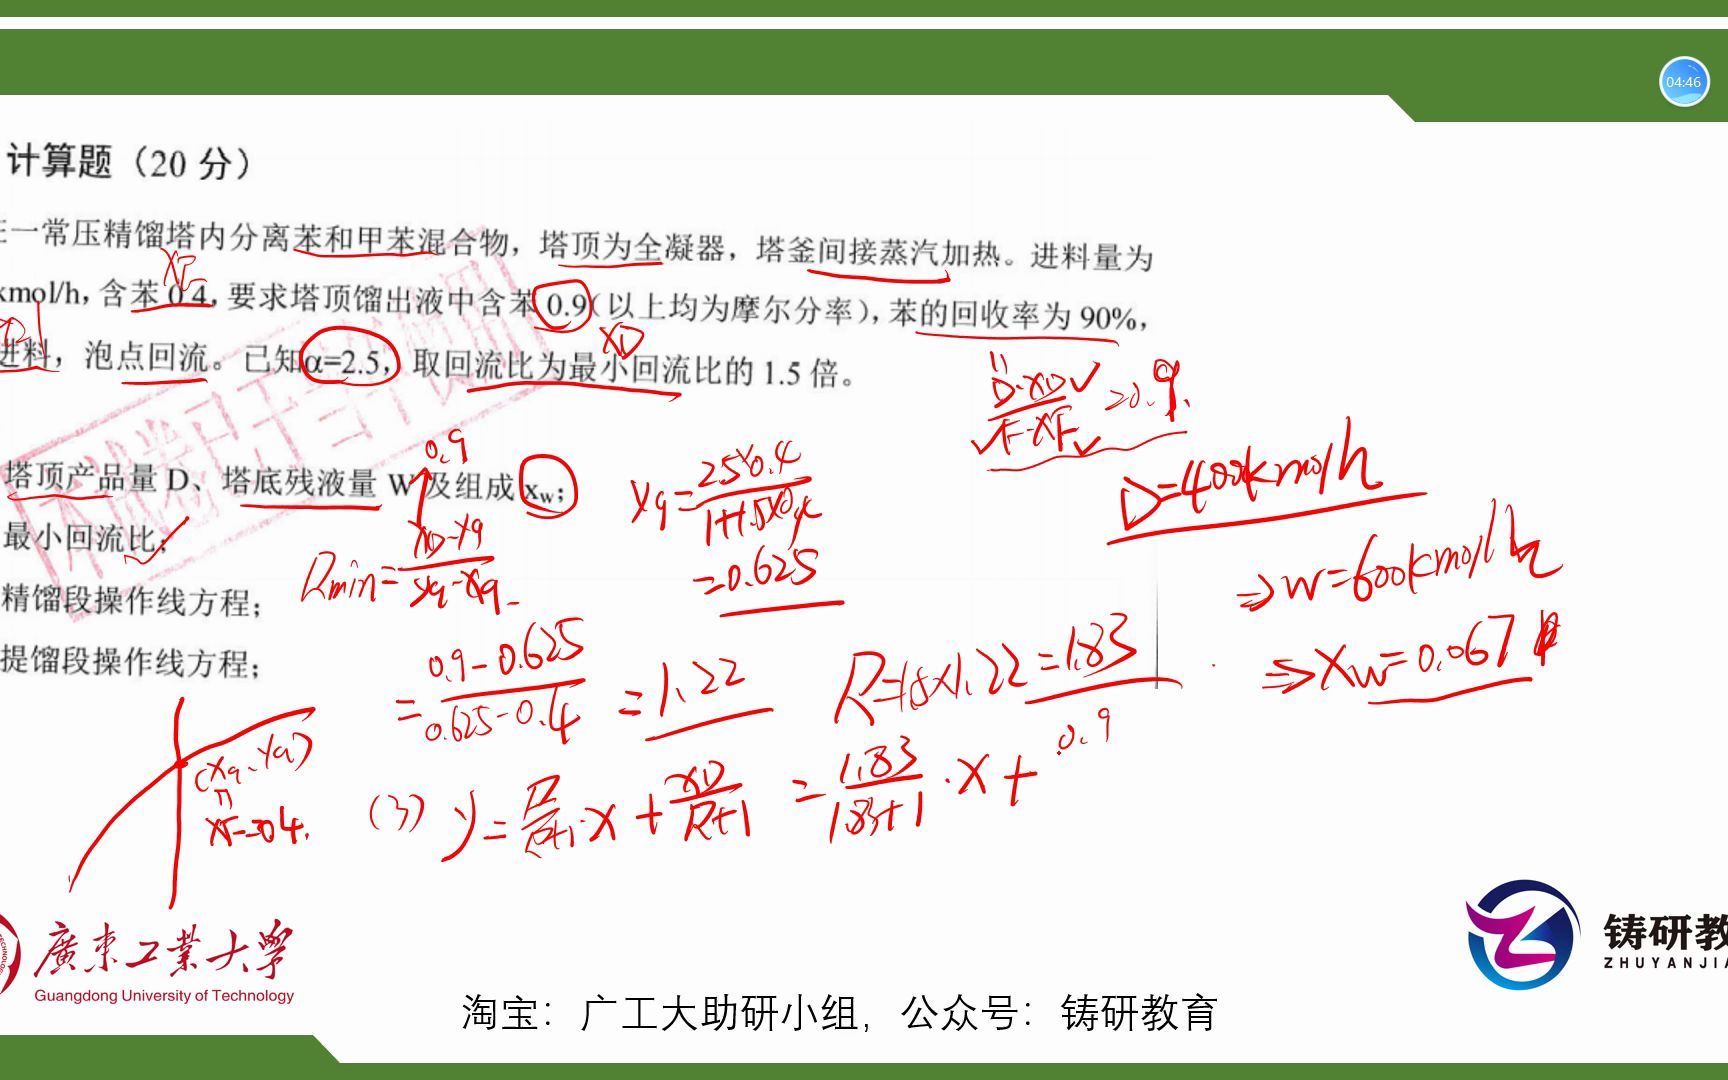 04:46
计算题（20 分）
一常压精馏塔内分离苯和甲苯混合物，塔顶为全凝器，塔釜间接蒸汽加热。进料量为
xF
kmol/h，含苯 0.4，要求塔顶馏出液中含苯 0.9（以上均为摩尔分率），苯的回收率为 90%，
xD
进料，泡点回流。已知α=2.5，取回流比为最小回流比的 1.5 倍。
D·xD
F·xF
=0.9
塔顶产品量 D、塔底残液量 W 及组成 xw；
最小回流比；
精馏段操作线方程；
提馏段操作线方程；
0.9
Rmin=
xD-yq
yq-xq
yq=
2.5×0.4
1+1.5×0.4
=0.625
D=400kmol/h
⇒W=600kmol/h
⇒xW=0.067
=
0.9-0.625
0.625-0.4
=1.22
R=1.5×1.22=1.83
(xq、yq)
xF=0.4
(3) y=
R
R+1
·x+
xD
R+1
=
1.83
1.83+1
·x+
0.9
廣東工業大學
Guangdong University of Technology
铸研教
ZHUYANJIA
淘宝：广工大助研小组，公众号：铸研教育